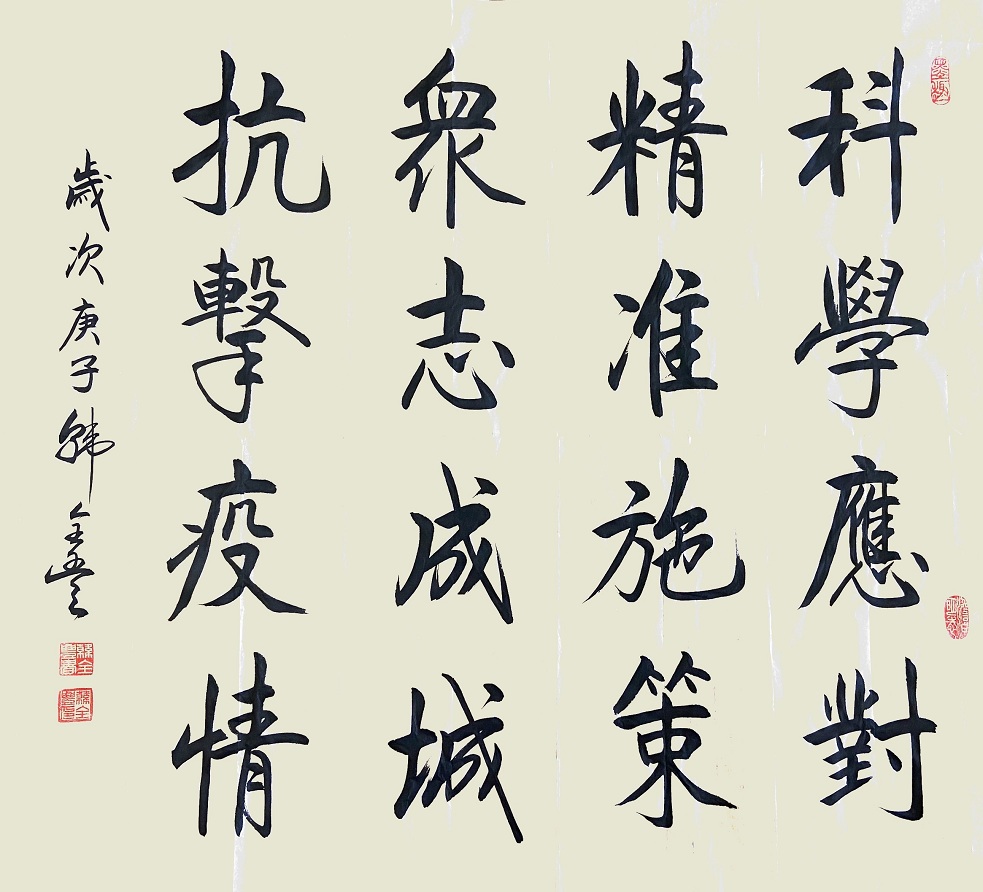 科學應對
精准施策
衆志成城
抗擊疫情
歲次庚子韓全豊